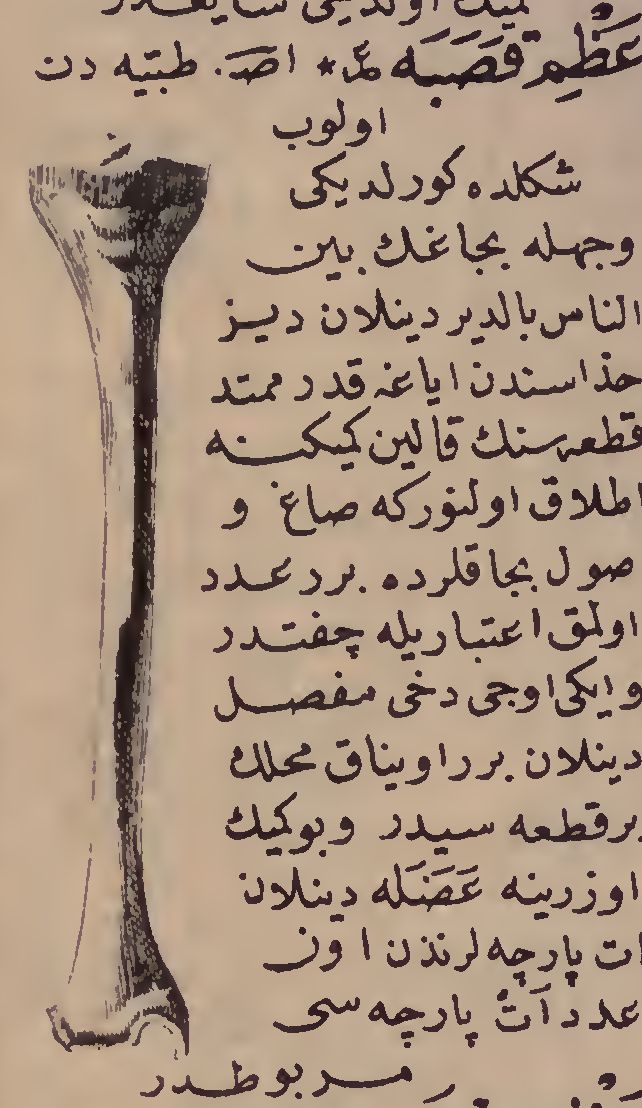 عَظْمِ قَصَبَه عر * اصـ. طبتيه دن
اولوب
شكلده كورلديكى
وجهله بجاغك بين
الناس بالدير دينلان ديز
حذاسندن اياغه قدر ممتد
قطعه سنك قالين كميكنه
اطلاق اولنوركه صاغ و
صول بجاقلرده برر عدد
اولمق اعتباريله چفتدر
وايكى اوجى دخى مفصل
دينلان برر اويناق محلك
بر قطعه سيدر وبوكميك
اوزرينه عَضَلَه دينلان
ات پارچه لرندن اون
عدد اَتْ پارچه سى
مربوطدر